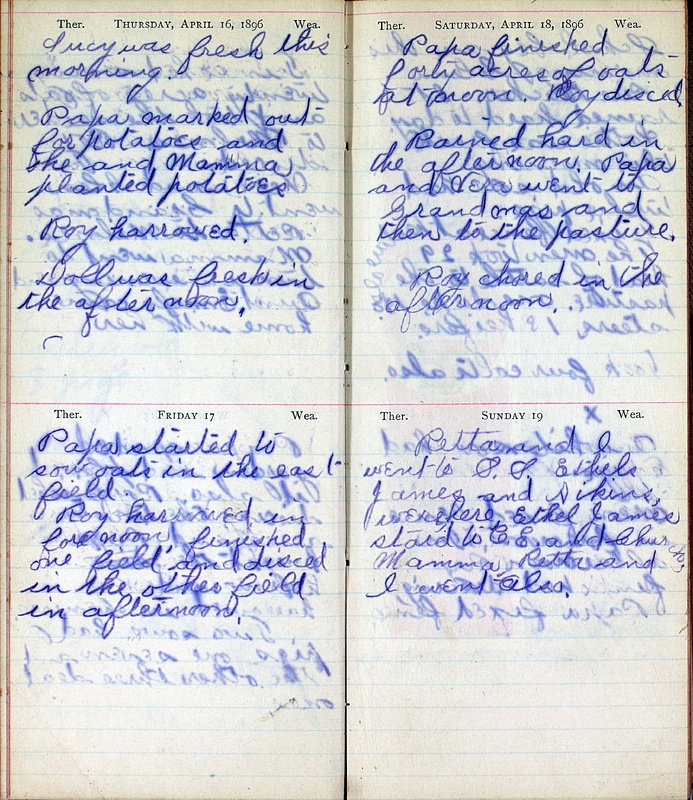 Ther. THURSDAY, APRIL 16, 1896 Wea.
Lucy was fresh this
morning.
Papa marked out
for potatoes and
he and Mamma
planted potatoes
Roy harrowed.
Doll was fresh in
the afternoon.
Ther. FRIDAY 17 Wea.
Papa started to
sow oats in the east
field.
Roy harrowed in
forenoon, finished
one field and disced
in the other field
in afternoon.
Ther. SATURDAY, APRIL 18, 1896 Wea.
Papa finished
forty acres of oats
at noon. Roy disced
Rained hard in
the afternoon. Papa
and Vera went to
Grandmas and
then to the pasture.
Roy chored in the
afternoon.
Ther. SUNDAY 19 Wea.
x
Retta and I
went to S. S. Ethels
James and
were here. Ethel James
staid to C. E. and Church.
Mamma Retta and
I went also.